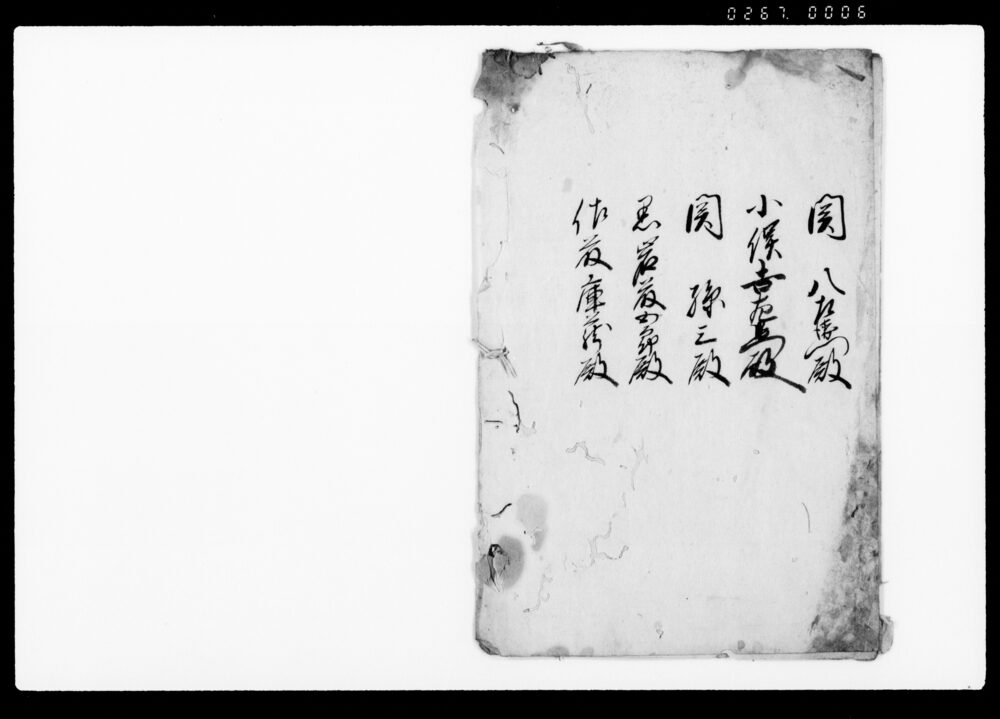 0267. 0006
関 八左衛門殿
小俣吉左衛門殿
関 孫三殿
黒岩藤四郎殿
佐藤庫蔵殿